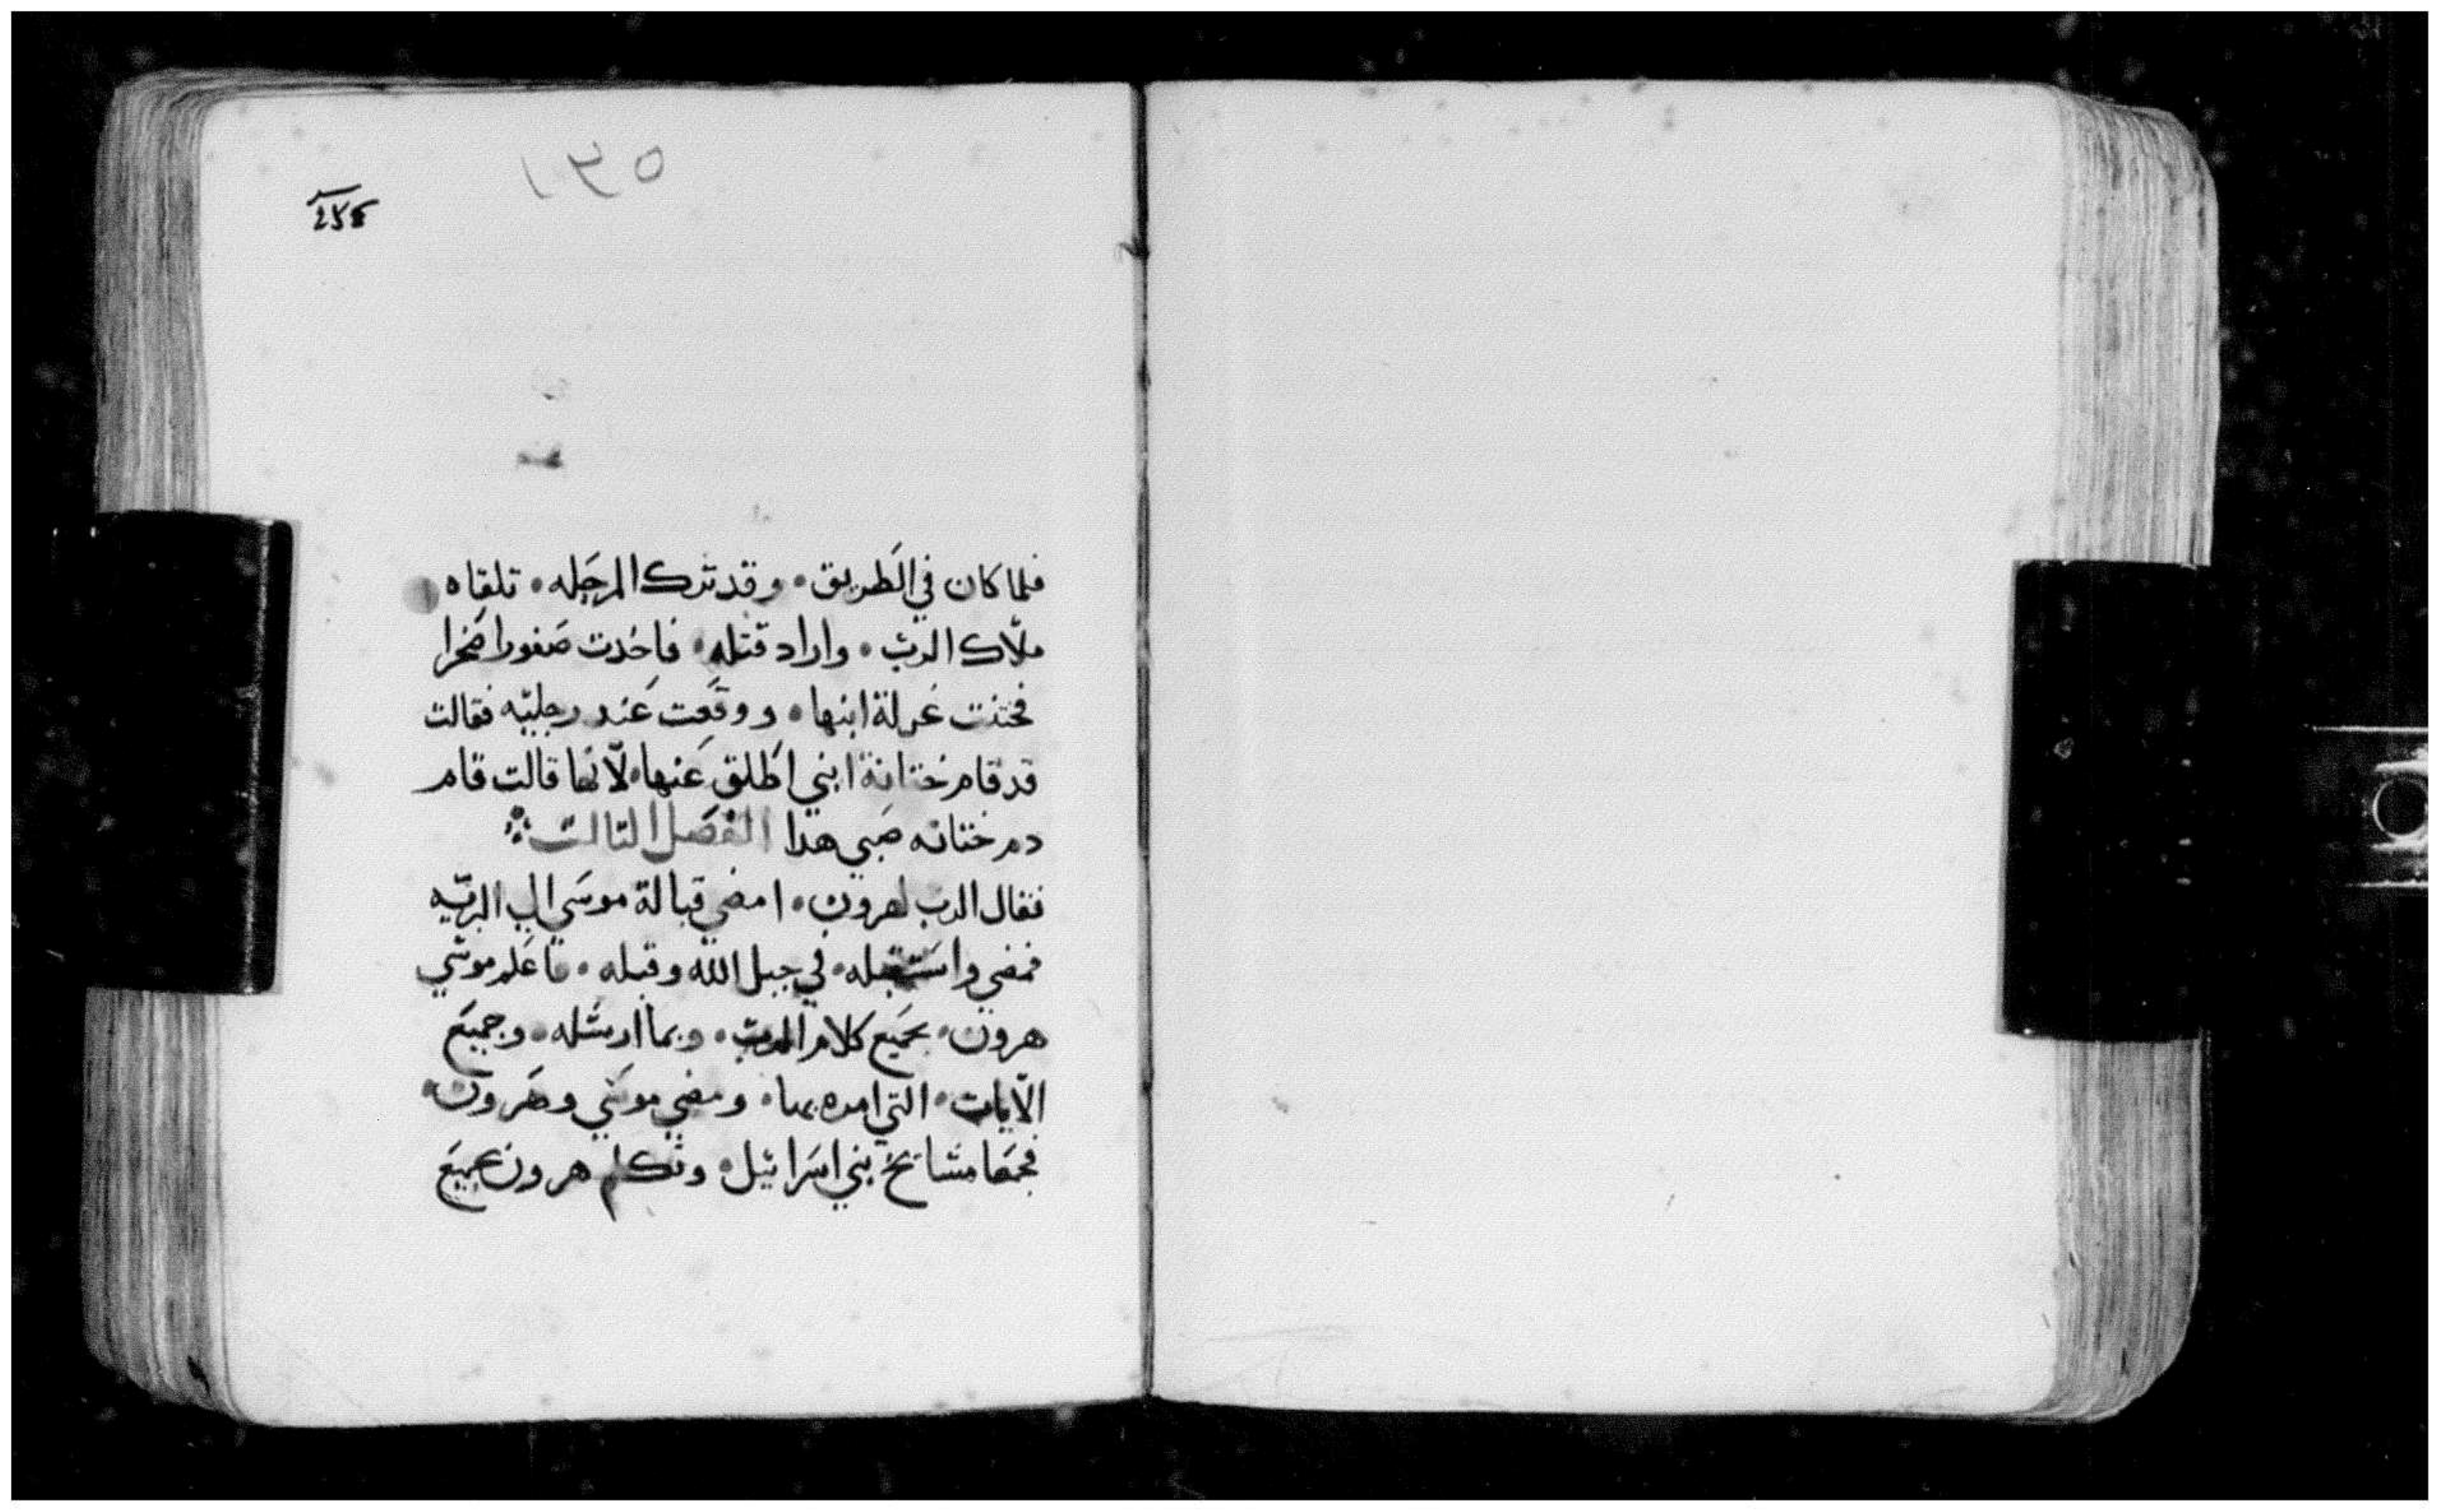 ١٣٥
255
فلما كان في الطريق • وقد ترك المرحله • تلقاه
ملاك الرب • واراد قتله • فاخدت صفورا ضخرا
فختنت غرلة ابنها • ووقعت عند رجليه فقالت
قد قام ختانة ابني اطلق عنها • لانها قالت قام
دم ختانه صبي هدا الفصل التالت
فقال الرب لهرون • امضي قبالة موسي الي البريه
فمضي واستقبله • في جبل الله وقبله • فاعلم موسي
هرون • بجميع كلام الرب • وبما ارسله • وجميع
الايات • التي امره بها • ومضي موسي وهرون •
فجمعا مشايخ بني اسرائيل • وتكلم هرون بجميع